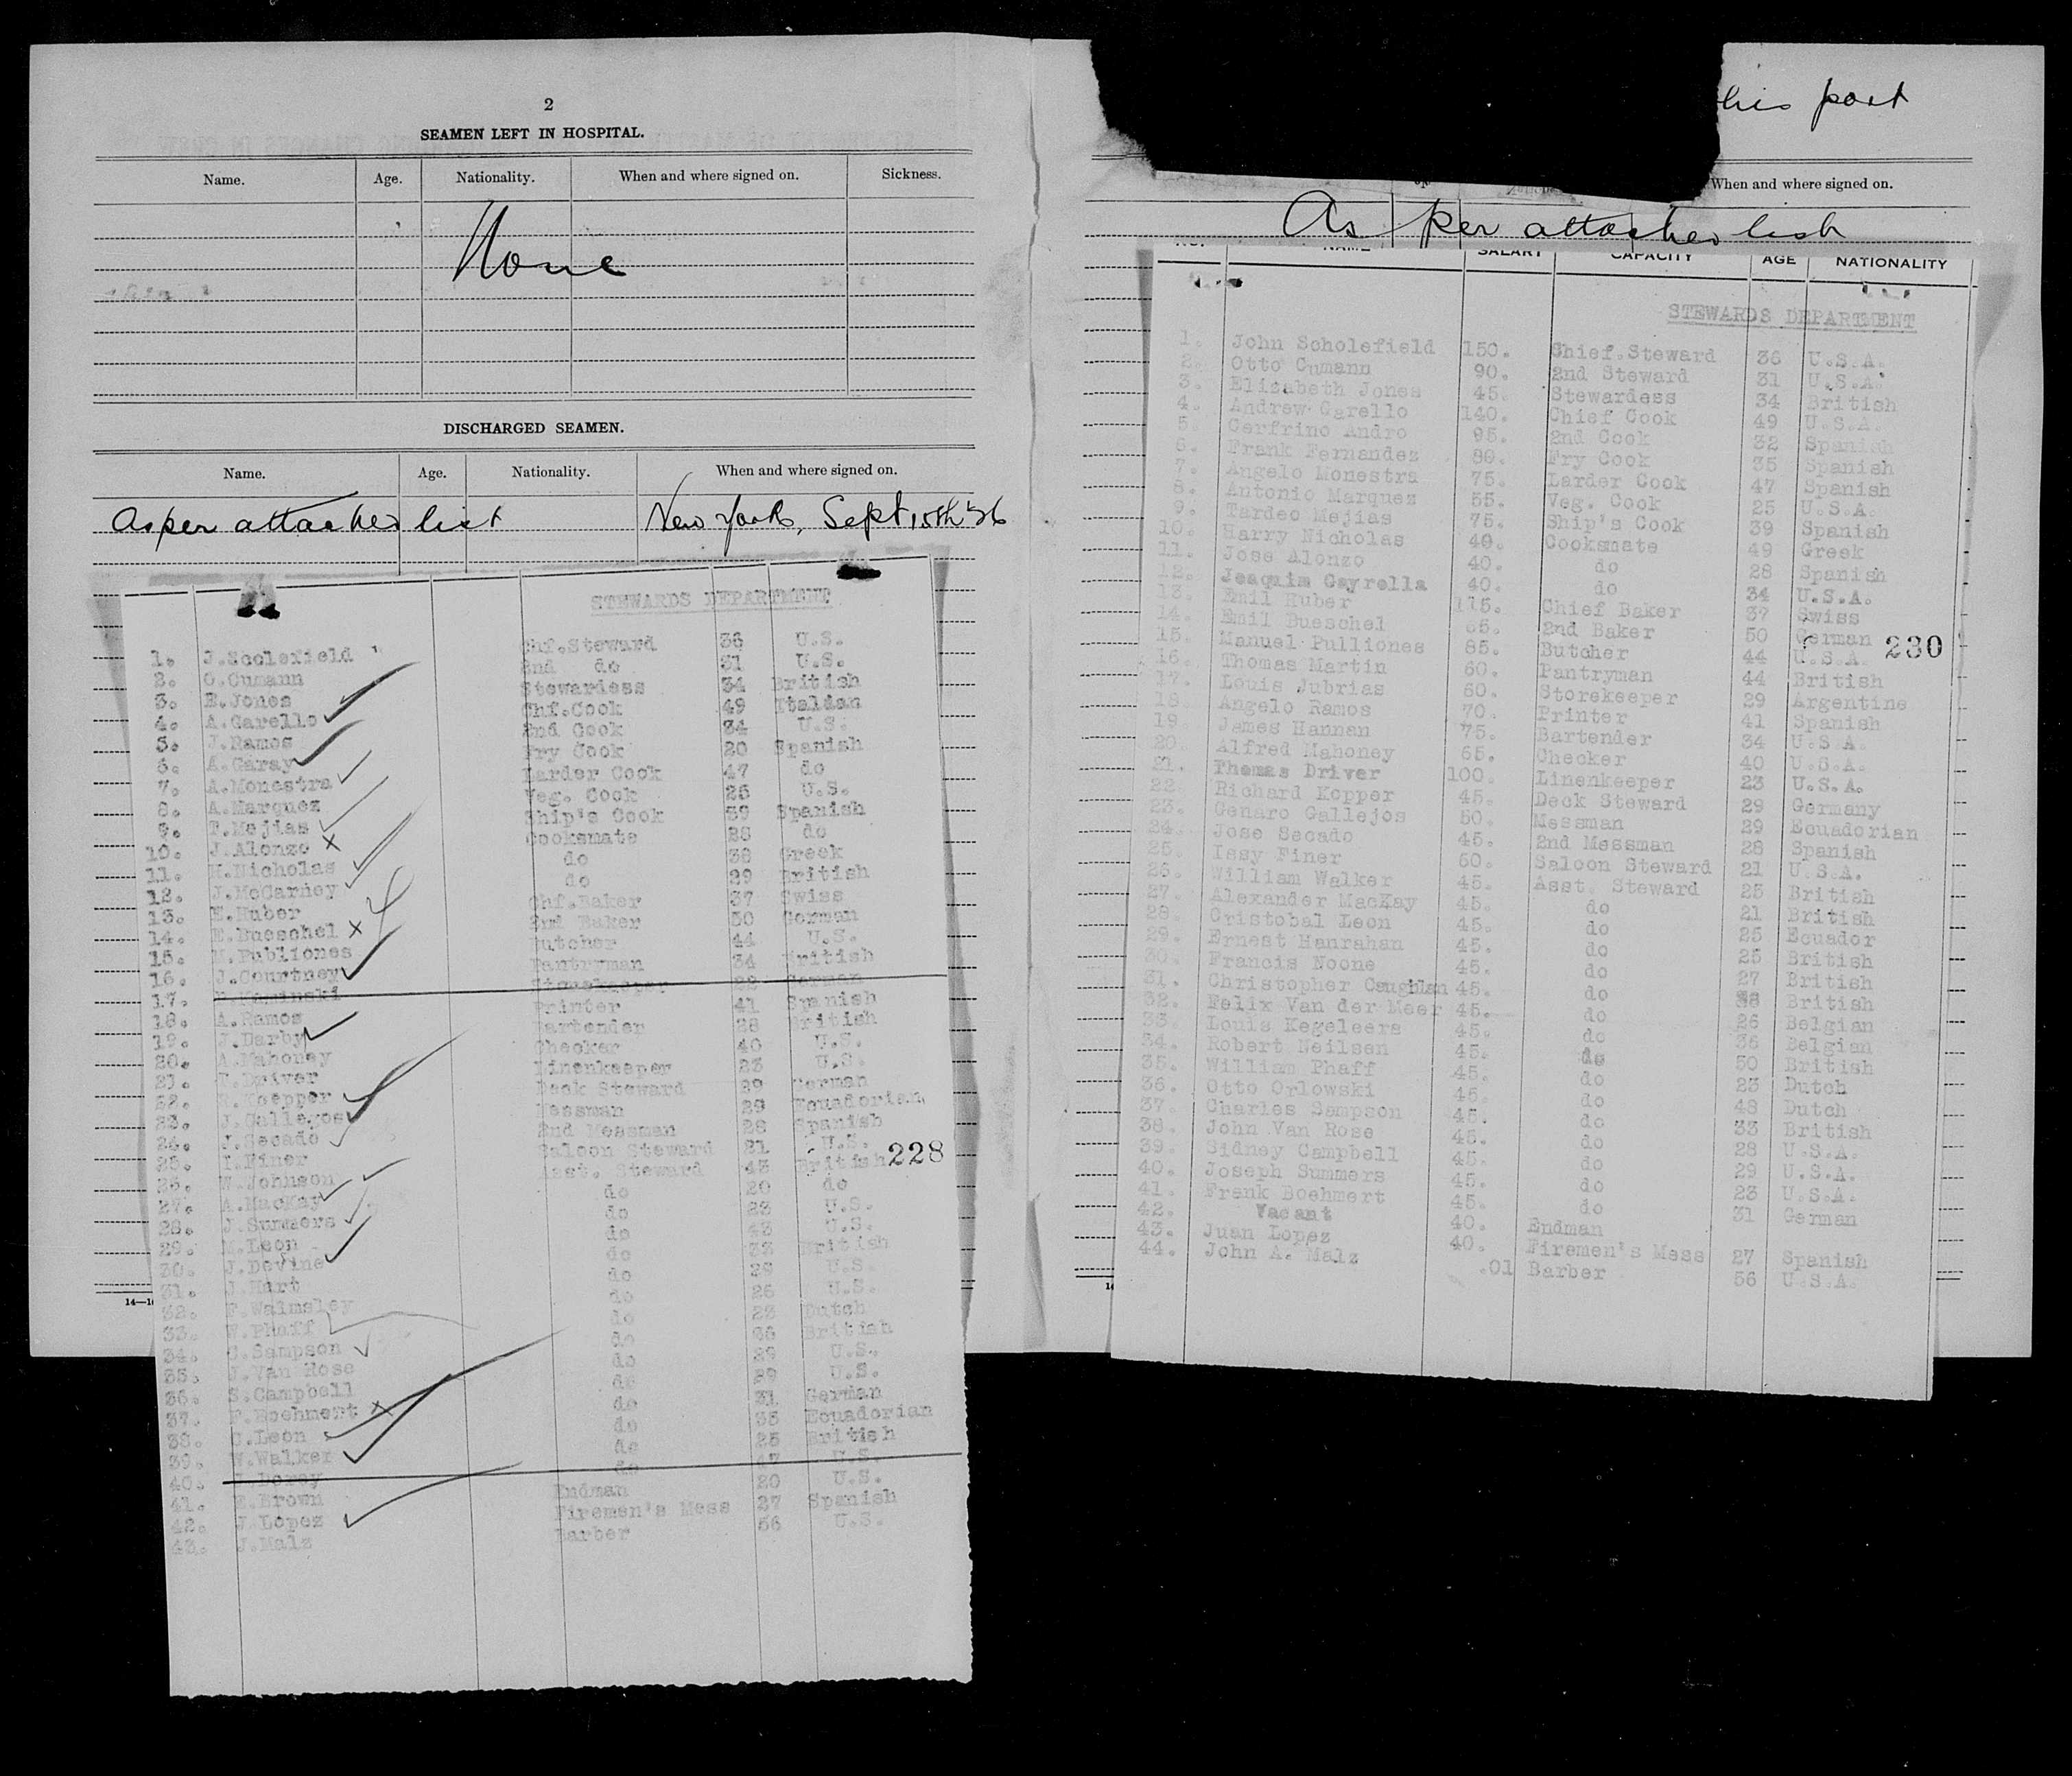 2
SEAMEN LEFT IN HOSPITAL.
Name. Age. Nationality. When and where signed on. Sickness.
None
DISCHARGED SEAMEN.
Name. Age. Nationality. When and where signed on.
As per attached list New York, Sept 15th '26
STEWARDS DEPARTMENT
1. J.Scolefield Chf.Steward 36 U.S.
2. O.Cumann 2nd do 31 U.S.
3. E.Jones Stewardess 34 British
4. A.Garello Chf.Cook 49 Italian
5. J.Ramos 2nd Cook 34 U.S.
6. A.Garay Fry Cook 20 Spanish
7. A.Monestra Larder Cook 47 do
8. A.Marquez Veg. Cook 25 U.S.
9. T.Mejias Ship's Cook 39 Spanish
10. J.Alonzo Cooksmate 28 do
11. H.Nicholas do 38 Greek
12. J.McCarney do 29 British
13. E.Huber Chf.Baker 37 Swiss
14. E.Bueschel 2nd Baker 50 German
15. M.Publiones Butcher 44 U.S.
16. J.Courtney Pantryman 34 British
17. Kaminski Storekeeper 28 German
18. A.Ramos Printer 41 Spanish
19. J.Darby Bartender 28 British
20. A.Mahoney Checker 40 U.S.
21. T.Driver Linenkeeper 23 U.S.
22. R.Koepper Deck Steward 29 German
23. J.Gallegos Messman 29 Ecuadorian
24. J.Secado 2nd Messman 28 Spanish
25. I.Finer Saloon Steward 21 U.S.
26. W.Johnson Asst. Steward 43 British 228
27. A.MacKay do 20 do
28. J.Summers do 23 U.S.
29. M.Leon do 43 U.S.
30. J.Devine do 33 British
31. J.Hart do 29 U.S.
32. F.Walmsley do 26 U.S.
33. W.Phaff do 23 Dutch
34. C.Sampson do 36 British
35. J.Van Rose do 29 U.S.
36. S.Campbell do 29 U.S.
37. F.Boehmert do 31 German
38. C.Leon do 35 Ecuadorian
39. W.Walker do 25 British
40. do 47 U.S.
41. E.Brown Endman 20 U.S.
42. J.Lopez Firemen's Mess 27 Spanish
43. J.Malz Barber 56 U.S.
his port
When and where signed on.
As per attached list
NAME SALARY CAPACITY AGE NATIONALITY
STEWARDS DEPARTMENT
1. John Scholefield 150. Chief.Steward 36 U.S.A.
2. Otto Cumann 90. 2nd Steward 31 U.S.A.
3. Elizabeth Jones 45. Stewardess 34 British
4. Andrew Garello 140. Chief Cook 49 U.S.A.
5. Cerfrino Andro 95. 2nd Cook 32 Spanish
6. Frank Fernandez 80. Fry Cook 35 Spanish
7. Angelo Monestra 75. Larder Cook 47 Spanish
8. Antonio Marquez 55. Veg. Cook 25 U.S.A.
9. Tardeo Mejias 75. Ship's Cook 39 Spanish
10. Harry Nicholas 40. Cooksmate 49 Greek
11. Jose Alonzo 40. do 28 Spanish
12. Joaquim Gayrella 40. do 34 U.S.A.
13. Emil Huber 115. Chief Baker 37 Swiss
14. Emil Bueschel 85. 2nd Baker 50 German
15. Manuel Pulliones 85. Butcher 44 U.S.A. 230
16. Thomas Martin 60. Pantryman 44 British
17. Louis Jubrias 60. Storekeeper 29 Argentine
18. Angelo Ramos 70. Printer 41 Spanish
19. James Hannan 75. Bartender 34 U.S.A.
20. Alfred Mahoney 65. Checker 40 U.S.A.
21. Thomas Driver 100. Linenkeeper 23 U.S.A.
22. Richard Kopper 45. Deck Steward 29 Germany
23. Genaro Gallejos 50. Messman 29 Ecuadorian
24. Jose Secado 45. 2nd Messman 28 Spanish
25. Issy Finer 60. Saloon Steward 21 U.S.A.
26. William Walker 45. Asst. Steward 25 British
27. Alexander MacKay 45. do 21 British
28. Cristobal Leon 45. do 25 Ecuador
29. Ernest Hanrahan 45. do 25 British
30. Francis Noone 45. do 27 British
31. Christopher Caughlan 45. do 38 British
32. Felix Van der Meer 45. do 26 Belgian
33. Louis Kegeleers 45. do 36 Belgian
34. Robert Neilsen 45. do 50 British
35. William Phaff 45. do 23 Dutch
36. Otto Orlowski 45. do 48 Dutch
37. Charles Sampson 45. do 33 British
38. John Van Rose 45. do 28 U.S.A.
39. Sidney Campbell 45. do 29 U.S.A.
40. Joseph Summers 45. do 23 U.S.A.
41. Frank Boehmert 45. do 31 German
42. Vacant 40. Endman
43. Juan Lopez 40. Firemen's Mess 27 Spanish
44. John A. Malz .01 Barber 56 U.S.A.